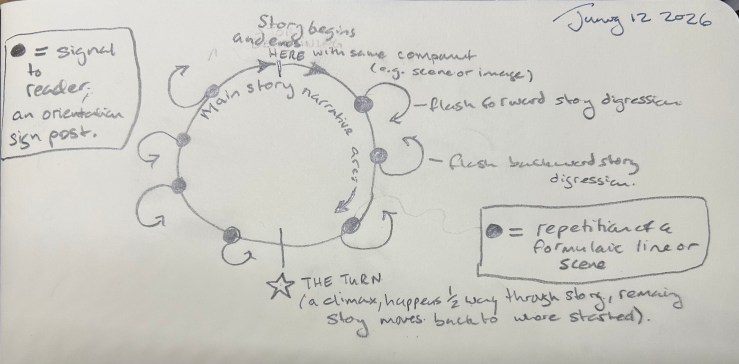 June 12 2026
Story begins
and ends
HERE with same component
(e.g. scene or image)
● = signal
to
reader;
an orientation
sign post.
Main story narrative arc
flash forward story digression
flash backward story
digression.
● = repetition of a
formulaic line or
scene
THE TURN
(a climax, happens 1/2 way through story, remaing
story moves back to where started).